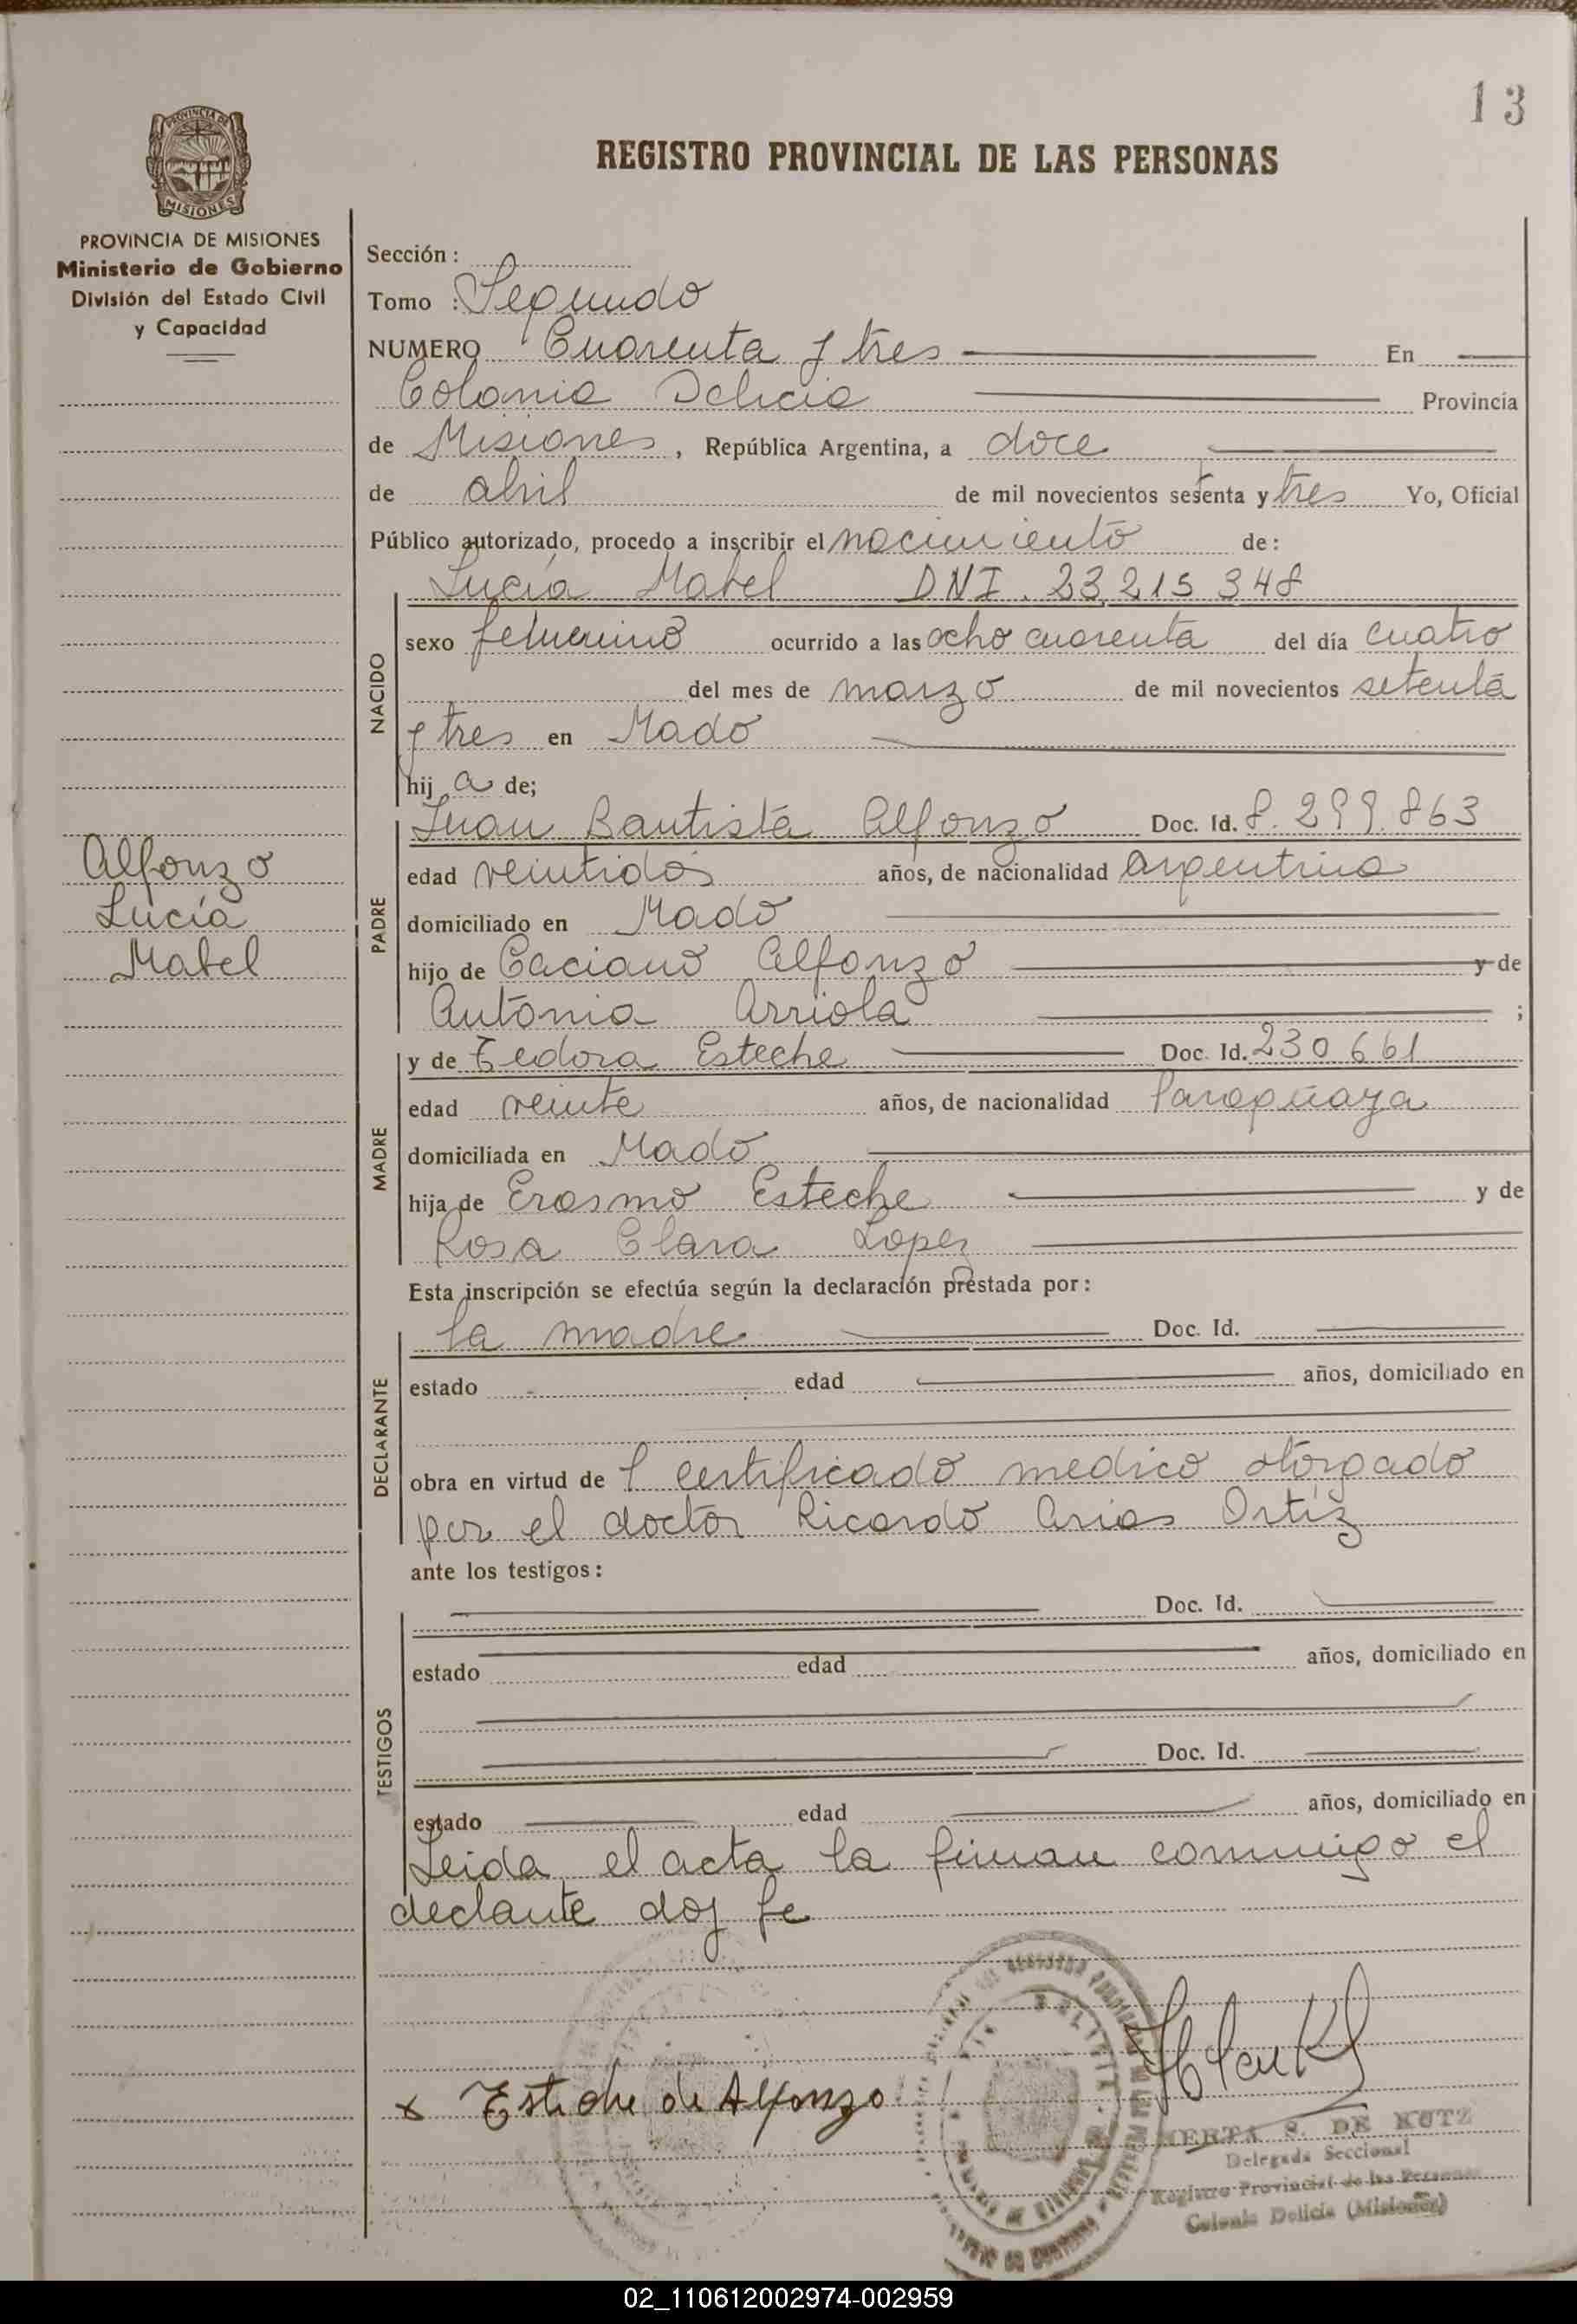 13
PROVINCIA DE
MISIONES
REGISTRO PROVINCIAL DE LAS PERSONAS
PROVINCIA DE MISIONES
Ministerio de Gobierno
División del Estado Civil
y Capacidad
Sección :
Tomo : Segundo
NUMERO Cuarenta y tres En
Colonia Delicia Provincia
de Misiones , República Argentina, a doce
de abril de mil novecientos setenta y tres Yo, Oficial
Público autorizado, procedo a inscribir el nacimiento de :
Lucía Mabel DNI. 23.215 348
NACIDO
sexo femenino ocurrido a las ocho cuarenta del día cuatro
del mes de marzo de mil novecientos setenta
y tres en Mado
hij a de;
PADRE
Juan Bautista Alfonzo Doc. Id. 8.299.863
edad veintidos años, de nacionalidad Argentina
domiciliado en Mado
hijo de Caciano Alfonzo y de
Antonia Arriola ;
Alfonzo
Lucía
Mabel
MADRE
y de Tedora Esteche Doc. Id. 230661
edad veinte años, de nacionalidad Paraguaya
domiciliada en Mado
hija de Erasmo Esteche y de
Rosa Clara Lopez
Esta inscripción se efectúa según la declaración prestada por :
DECLARANTE
la madre Doc. Id.
estado edad años, domiciliado en
obra en virtud de l certificado medico otorgado
por el doctor Ricardo Arias Ortiz
ante los testigos :
TESTIGOS
Doc. Id.
estado edad años, domiciliado en
Doc. Id.
estado edad años, domiciliado en
Leida el acta la firman conmigo el
declante doy fe
x Esteche de Alfonzo
HERTA S. DE KUTZ
Delegada Seccional
Registro Provincial de las Personas
Colonia Delicia (Misiones)
02_110612002974-002959